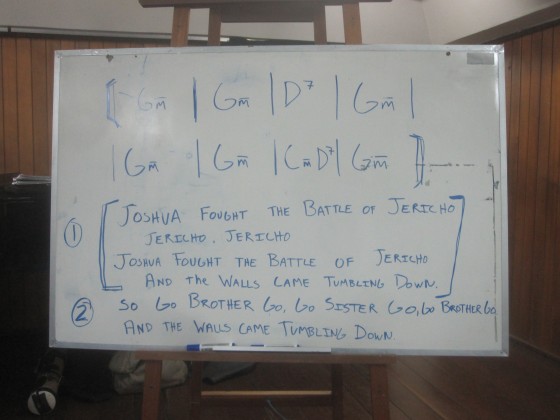 [ Gm | Gm | D7 | Gm |
| Gm | Gm | Cm D7 | Gm ]
① JOSHUA FOUGHT THE BATTLE OF JERICHO
JERICHO, JERICHO
JOSHUA FOUGHT THE BATTLE OF JERICHO
AND THE WALLS CAME TUMBLING DOWN.
② SO GO BROTHER GO, GO SISTER GO, GO BROTHER GO
AND THE WALLS CAME TUMBLING DOWN